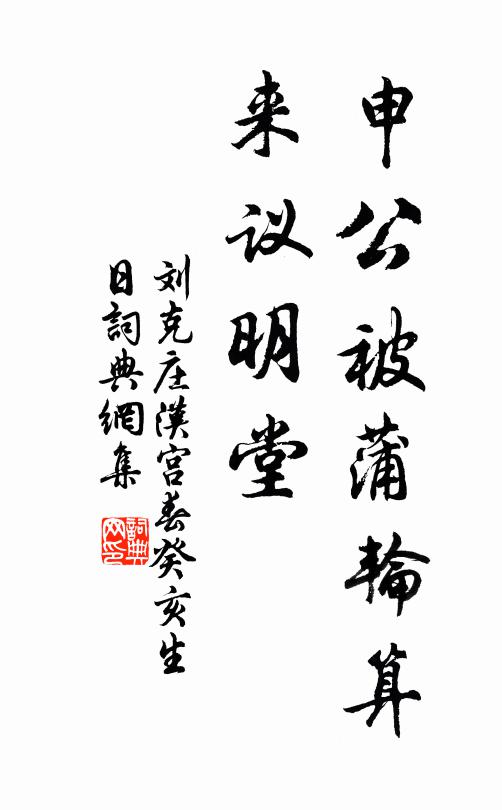 申公被蒲輪算
来议明堂
刘克庄漢宫春癸亥生
日詞典網集
詞典
网印